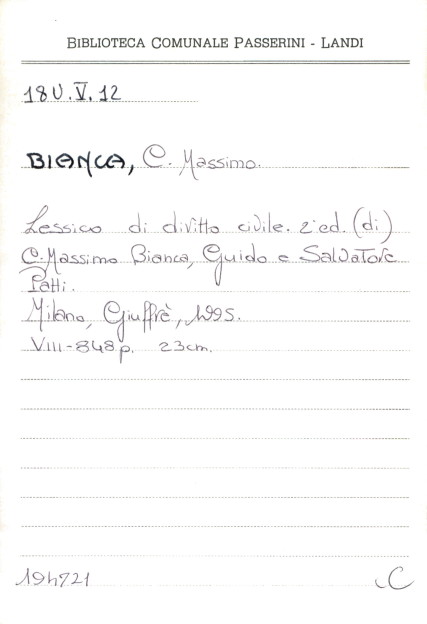 BIBLIOTECA COMUNALE PASSERINI - LANDI
18U.V.12
BIANCA, C. Massimo.
Lessico di diritto civile. 2ª ed. (di)
C. Massimo Bianca, Guido e Salvatore
Patti.
Milano, Giuffrè, 1995.
VIII-848 p. 23cm.
194721
C